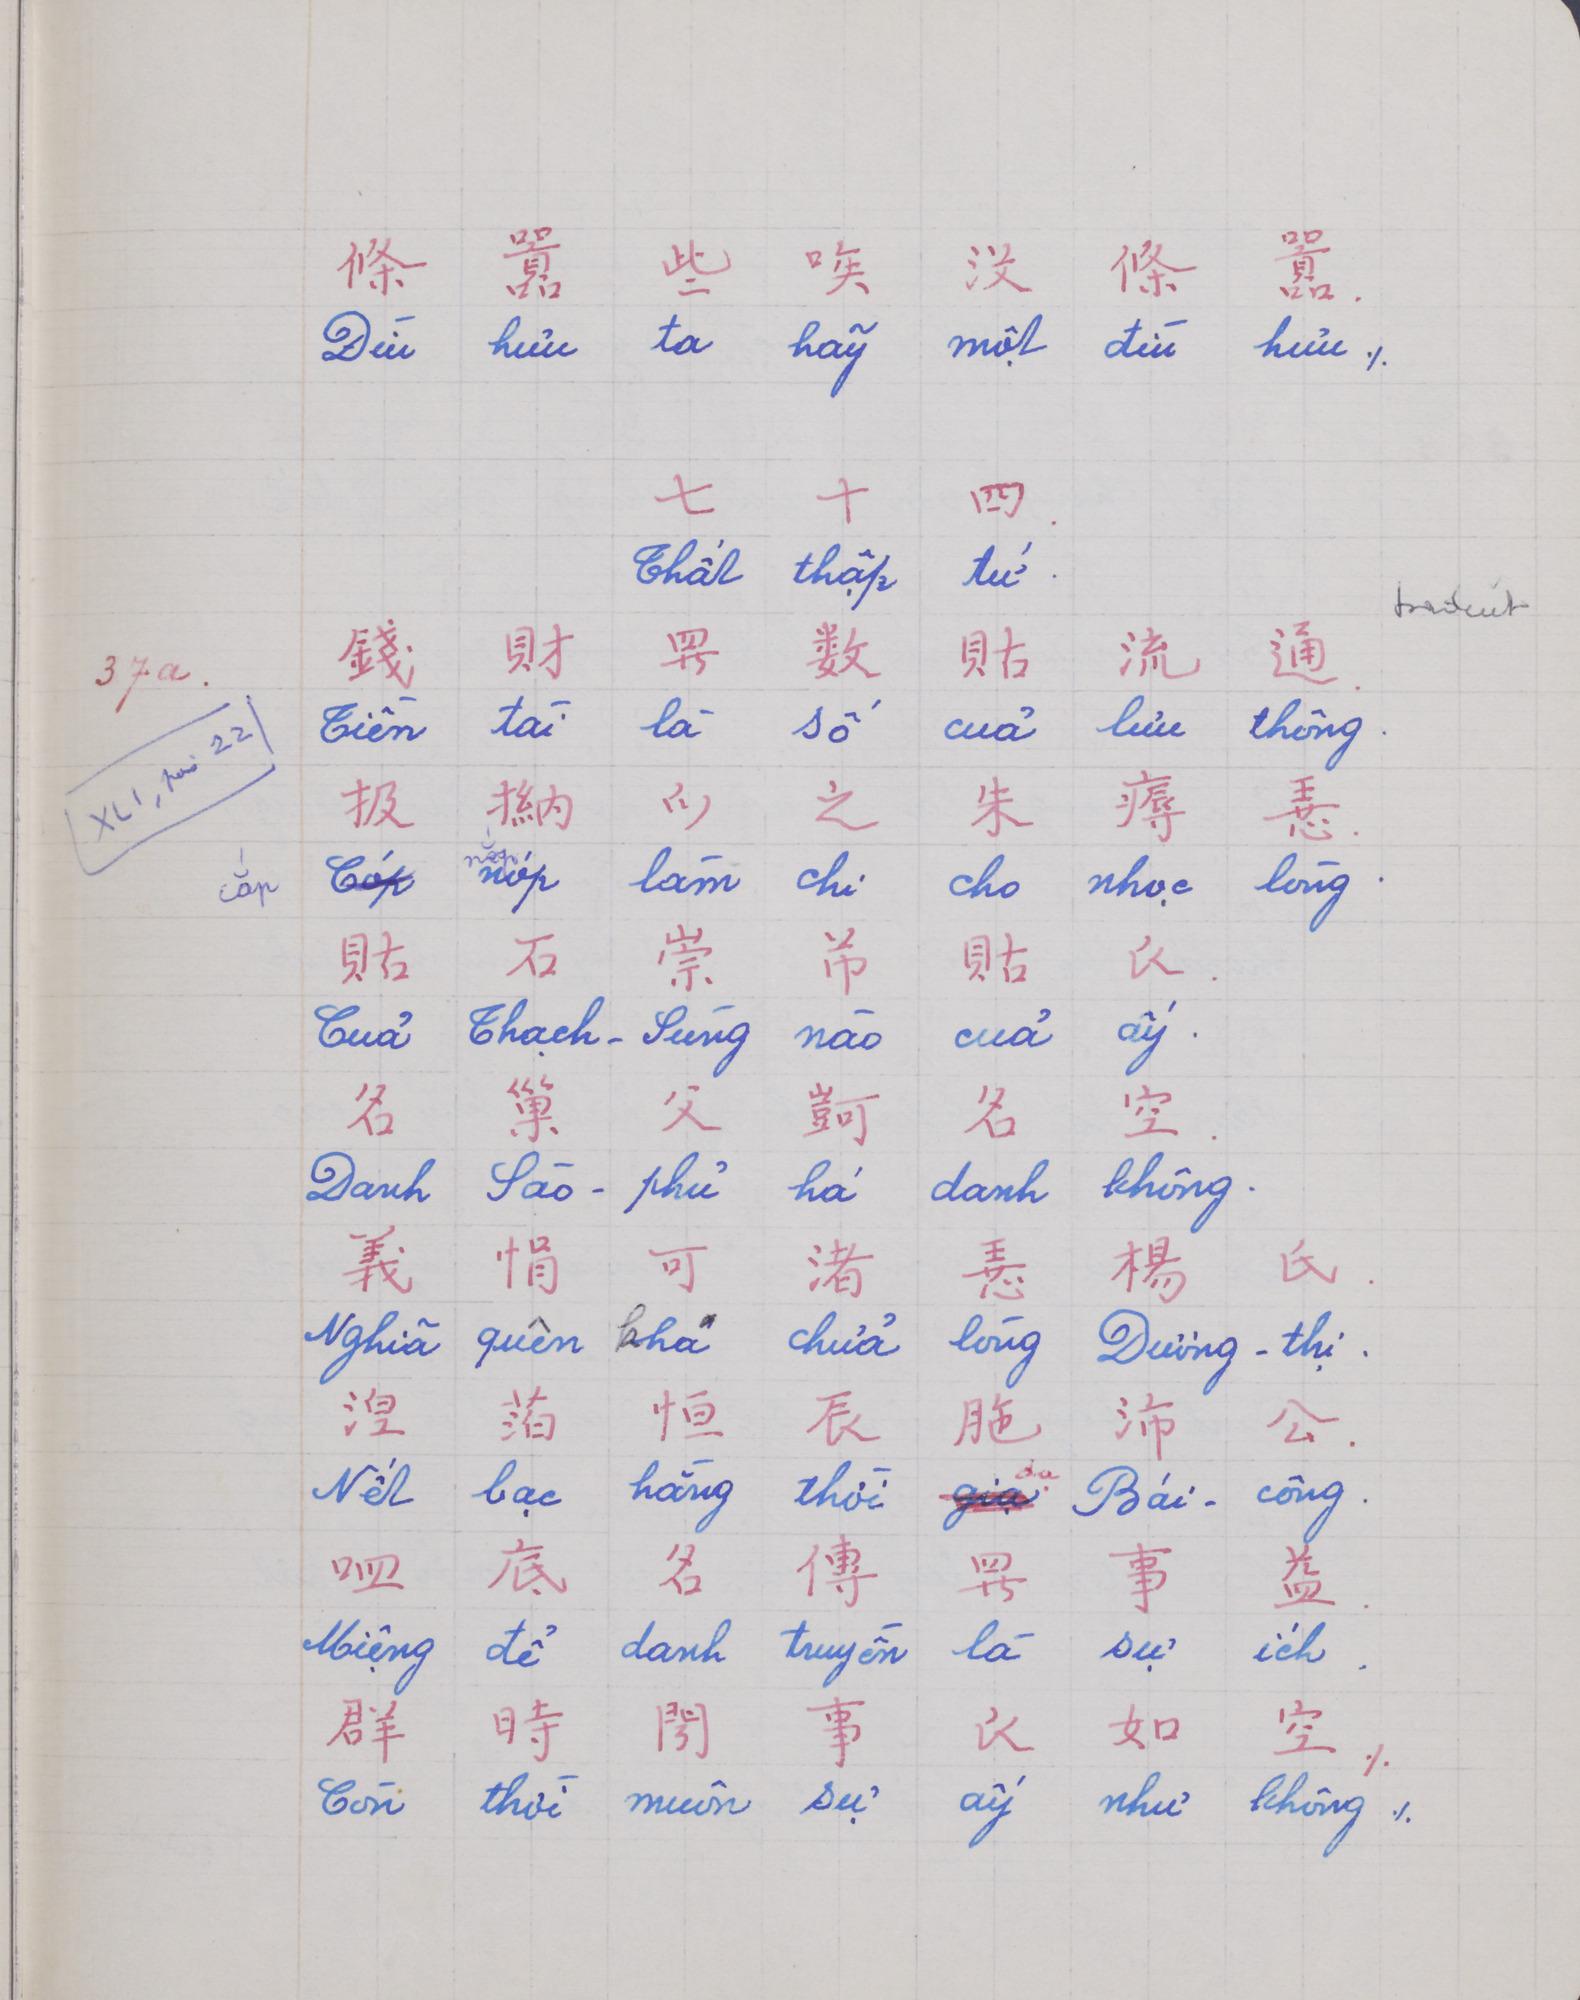 條 囂 些 唉 没 條 囂.
Dìu hưu ta hãy một đìu hưu ./.
七 十 四.
Thất thập tứ.
traduit
錢 財 𱺵 数 貼 流 通.
37a.
Tiền tài là số của lưu thông.
XLI, bài 22
扱 㨥 𫜵 之 朱 辱 𢚸.
cắp Cóp nắp nóp làm chi cho nhọc lòng.
貼 石 崇 芇 貼 𧘇.
Của Thạch-Sùng nào của ấy.
名 巢 父 㗿 名 空.
Danh Sào-phủ há danh không.
義 悁 可 渚 𢚸 楊 氏.
Nghĩa quên khả chửa lòng Dương-thị.
涅 萡 恒 辰 𦠘 沛 公.
Nết bạc hằng thời giạ dạ Bái-công.
𠰘 底 名 傳 𱺵 事 益.
Miệng để danh truyền là sự ích.
群 時 𨷈 事 𧘇 如 空 ./.
Còn thời muôn sự ấy như không ./.